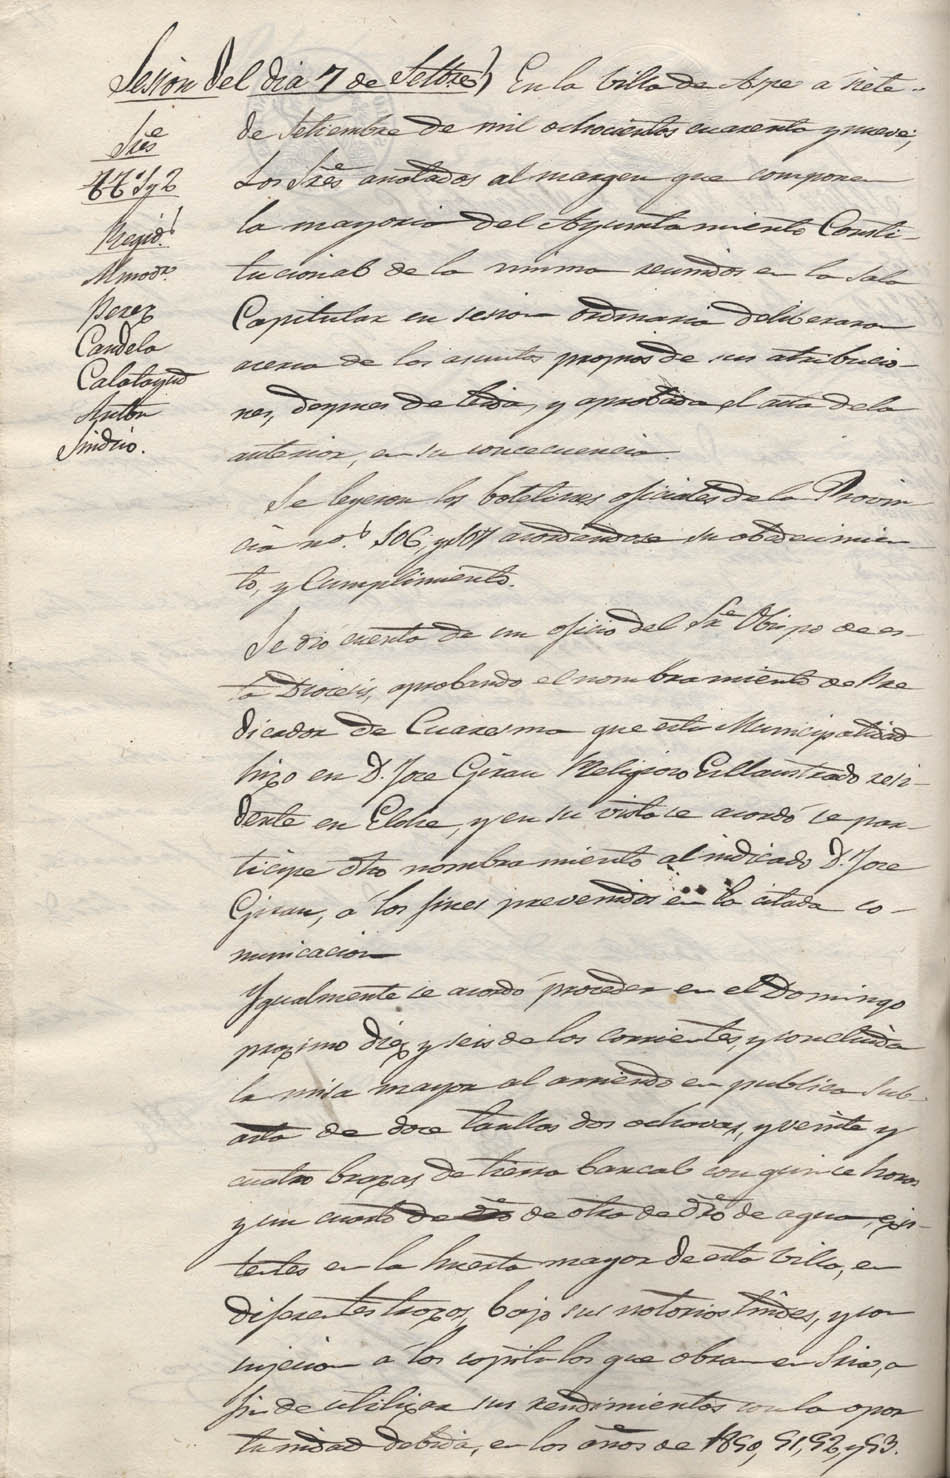 Sesion del dia 7 de Setbre) En la Villa de Aspe a siete
de Setiembre de mil ochocientos cuarenta y nueve;
Sres
Los Sres anotados al margen que componen
Tes 1º y 2º
la mayoria del Ayuntamiento Consti-
Regids
tucional de la misma reunidos en la Sala
Almodr
Capitular en sesion ordinaria deliberaron
Perez
Candela
acerca de los asuntos propios de sus atribucio-
Calatayud
nes, despues de leida, y aprobada el acta de la
Anton
Sindico.
anterior, en su concecuencia
Se leyeron los boletines oficiales de la Provin-
cia nos 106, y 107 acordandose su obedecimien-
to, y Cumplimiento.
Se dio cuenta de un oficio del Sr Obispo de es-
ta Diocesis, aprobando el nombramiento de Pre
dicador de Cuaresma que esta Municipalidad
hizo en D. Jose Giran Religioso Esclaustrado resi-
dente en Elche, y en su vista se acordó se par-
ticipe dho nombramiento al indicado D. Jose
Giran, a los fines prevenidos en la citada co-
municacion
Igualmente se acordó proceder en el Domingo
proximo diez y seis de los corrientes, y concluida
la misa mayor al arriendo en publica Sub-
asta de doce taullas dos ochavas, y veinte y
cuatro brazas de tierra bancal con quince horas
y un cuarto de otra de dro de agua, exis-
tentes en la huerta mayor de esta Villa, en
diferentes trozos, bajo sus notorios lindes, y con
sujecion a los capitulos que obran en Sria, a
fin de utilizar sus rendimientos con la opor
tunidad debida, en los años de 1850, 51, 52, y 53.